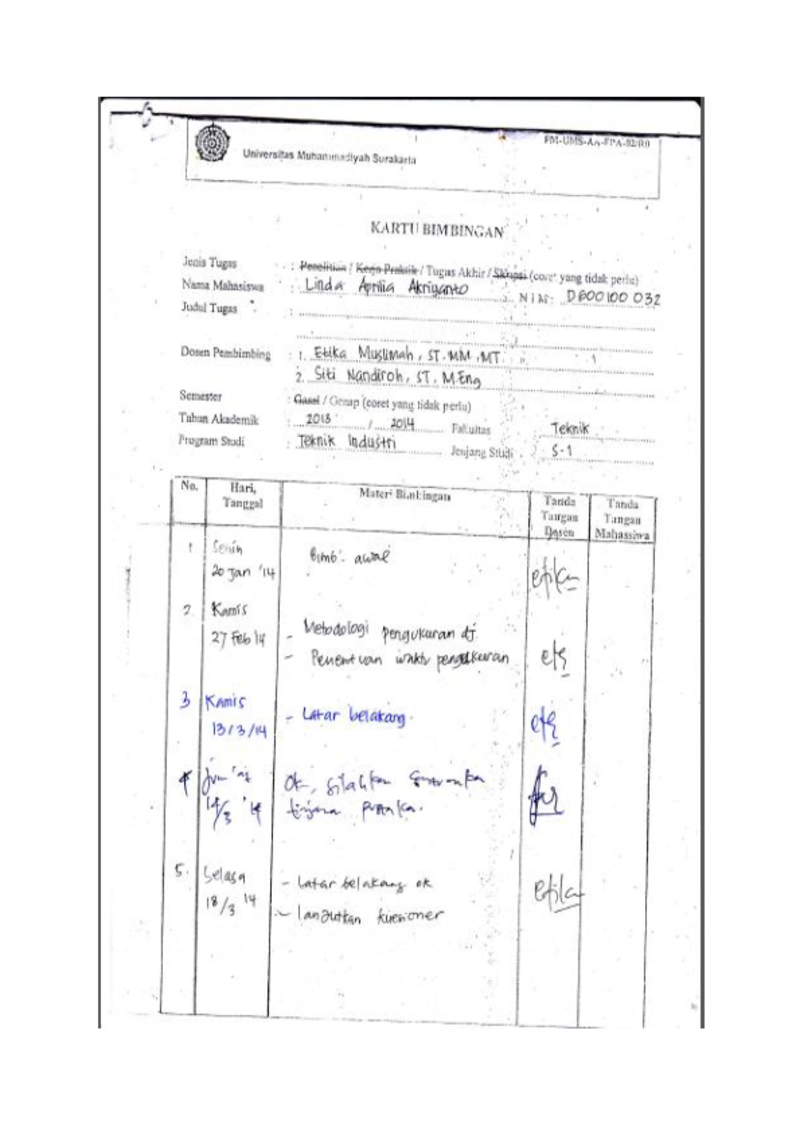 FM-UMS-AA-FPA-02/R0
Universitas Muhammadiyah Surakarta
KARTU BIMBINGAN
Jenis Tugas : Penelitian / Kerja Praktik / Tugas Akhir / Skripsi (coret yang tidak perlu)
Nama Mahasiswa : Linda Aprilia Akriyanto NIM: D600100032
Judul Tugas :
Dosen Pembimbing : 1. Etika Muslimah, ST.MM.MT
2. Siti Nandiroh, ST. M.Eng
Semester : Gasal / Genap (coret yang tidak perlu)
Tahun Akademik : 2013 / 2014 Fakultas Teknik
Program Studi : Teknik Industri Jenjang Studi : S-1
No. Hari, Tanggal Materi Bimbingan Tanda Tangan Dosen Tanda Tangan Mahasiswa
1 Senin Bimb. awal
20 Jan '14 etika
2 Kamis
27 Feb '14 - Metodologi pengukuran dj
- Penentuan waktu pengukuran
3 Kamis - Latar belakang.
13/3/14
4 Jum'at Ok, silahkan
14/3 '14 pustaka.
5. Selasa - Latar belakang ok
18/3 '14 - lanjutkan kuesioner
etika